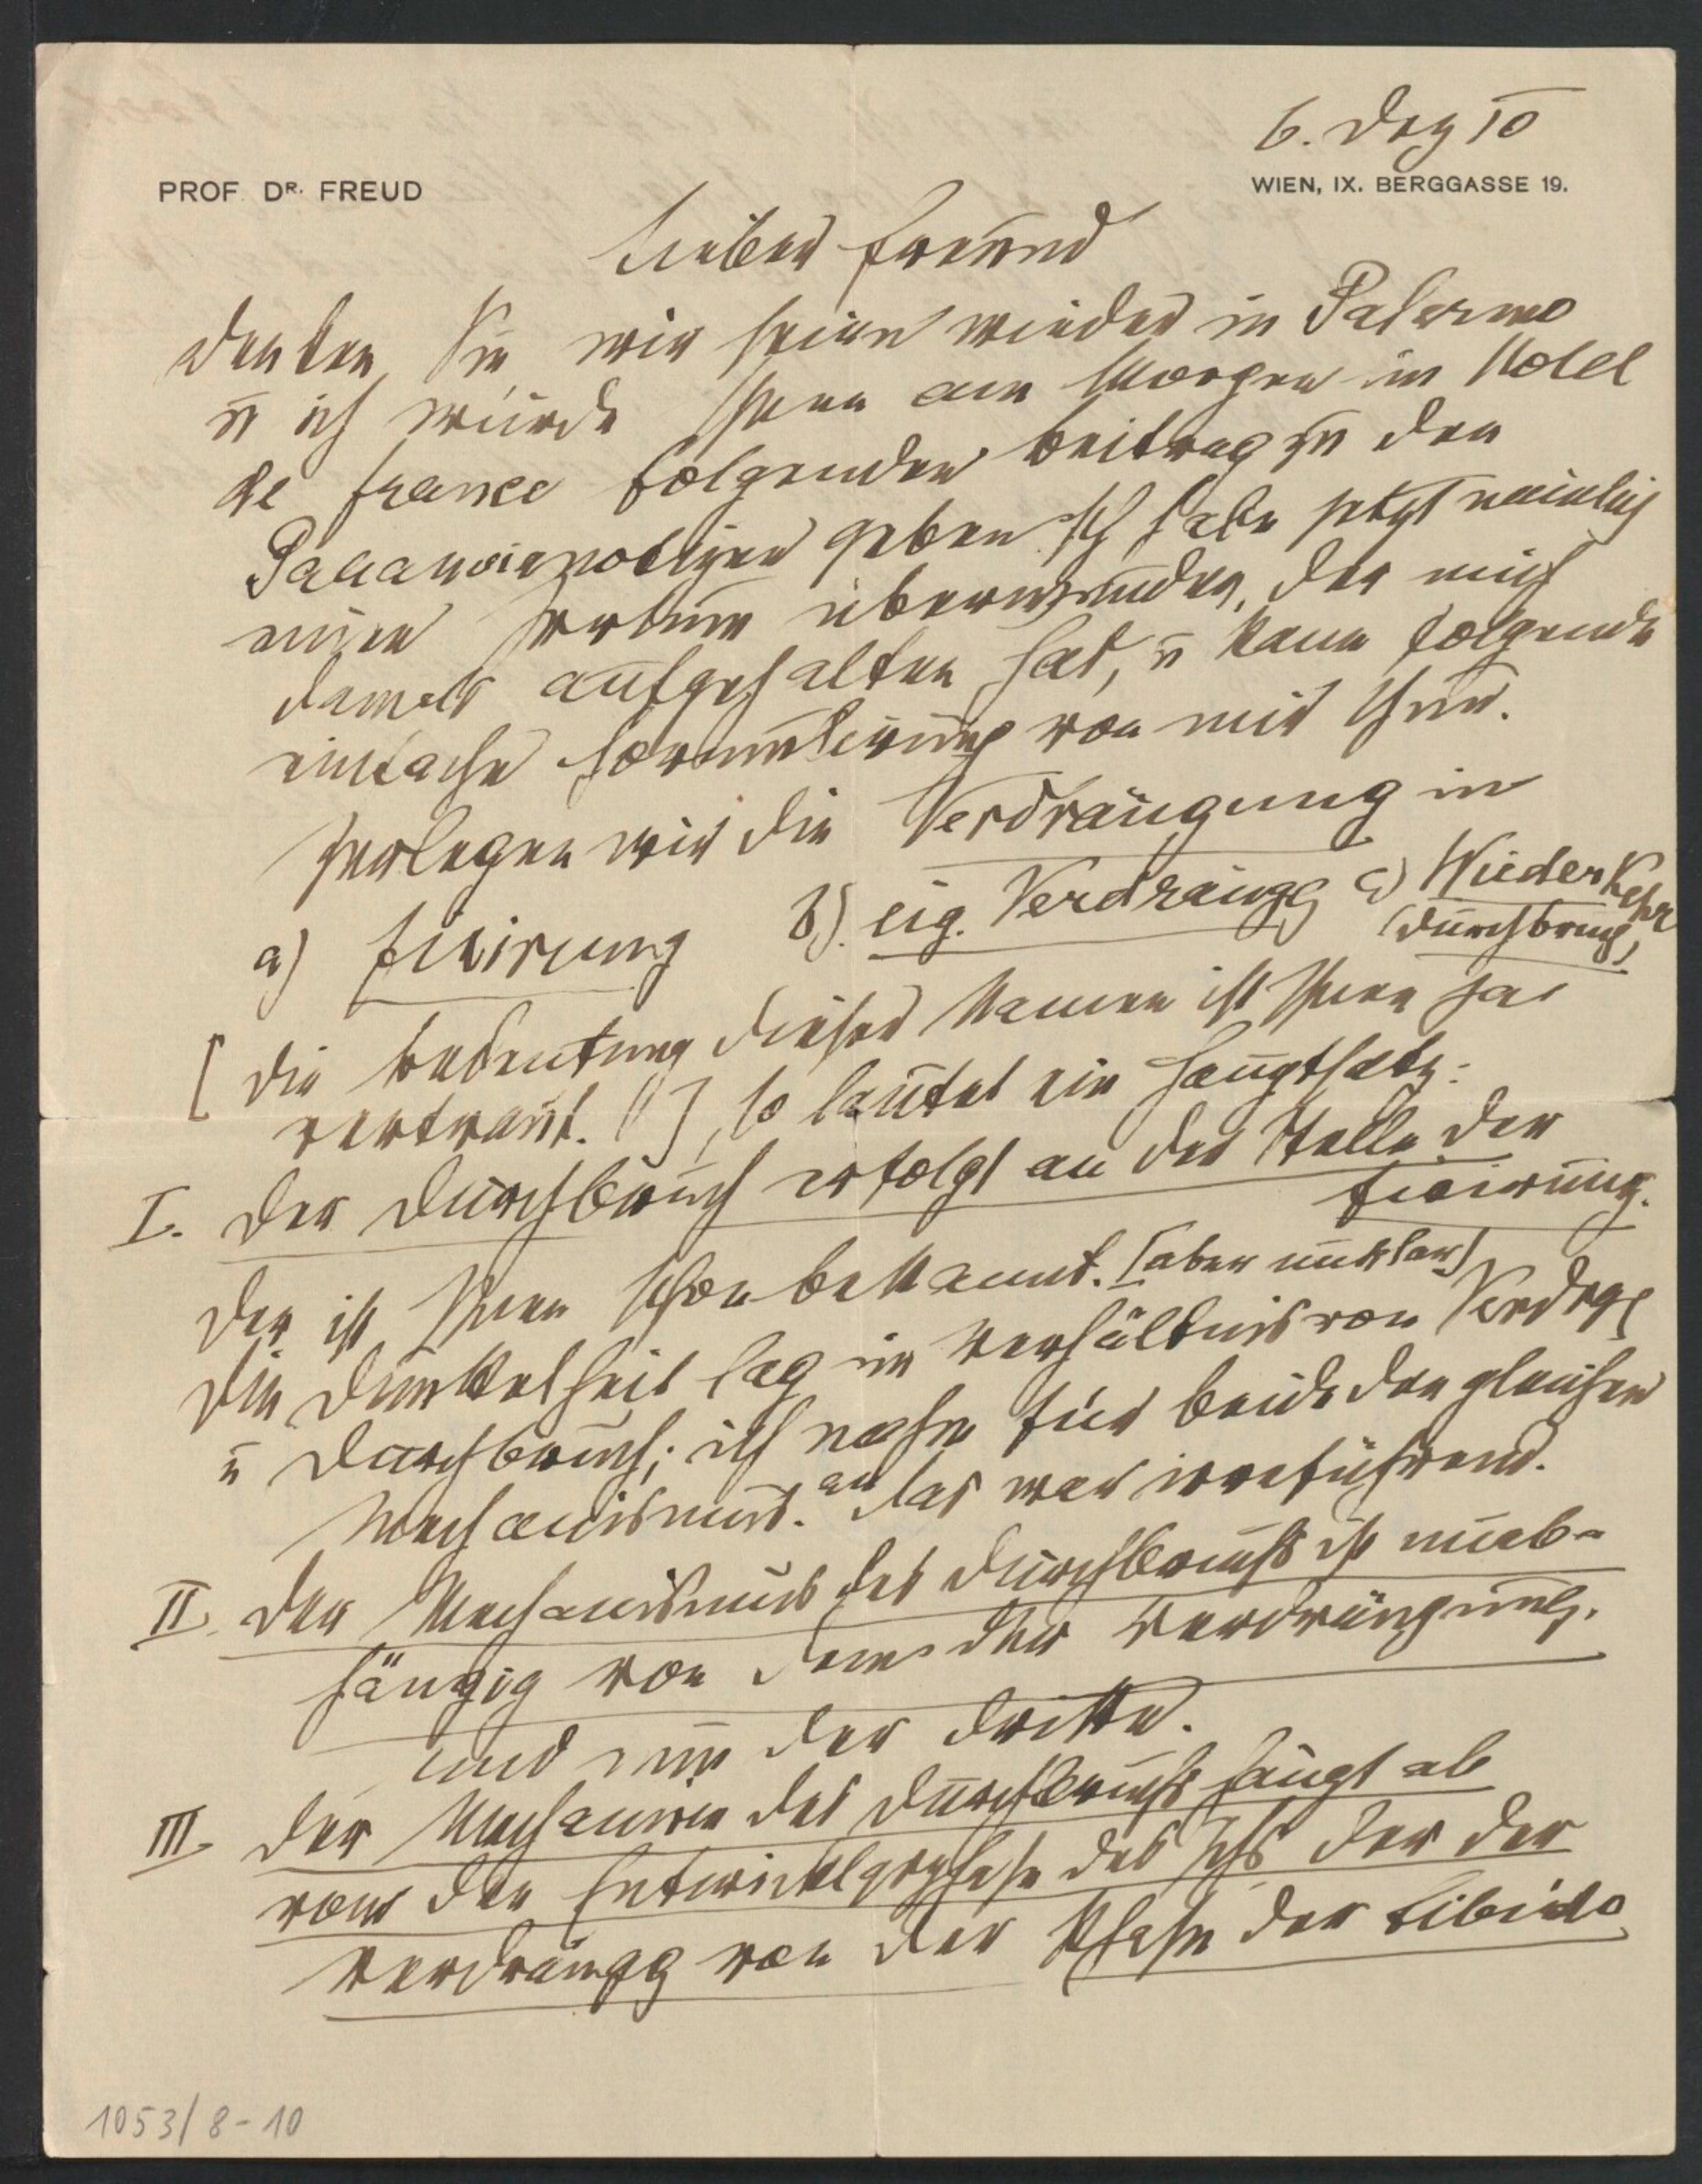 6. Dez 10
PROF. DR. FREUD
WIEN, IX. BERGGASSE 19.
Lieber Freund
Denken Sie, wir seien wieder in Palermo
u ich würde Ihnen am Morgen im Hotel
de France folgenden Beitrag zu den
Paranoianotizen geben. Ich habe jetzt nämlich
einen Irrtum überwunden, der mich
damals aufgehalten hat, u kann folgende
einfache Formulierung von mir thun.
Zerlegen wir die Verdrängung in
a) Fixirung b). eig. Verdrängg c) Wiederkehr
(Durchbruch)
[Die Bedeutung dieser Namen ist Ihnen ja
vertraut.], so lautet ein Hauptsatz:
I. Der Durchbruch erfolgt an der Stelle der
Fixirung.
Der ist Ihnen schon bekannt. [aber unklar]
Die Dunkelheit lag im Verhältnis von Verdrgg
u Durchbruch; ich nahm für beide den gleichen
Mechanismus an. Das war irreführend.
II. Der Mechanismus des Durchbruchs ist unab-
hängig von dem der Verdrängung.
Und nun der dritte.
III. Der Mechanism des Durchbruchs hängt ab
von der Entwicklgsphase des Ichs der der
Verdrängg von der Phase der Libido
1053/8-10